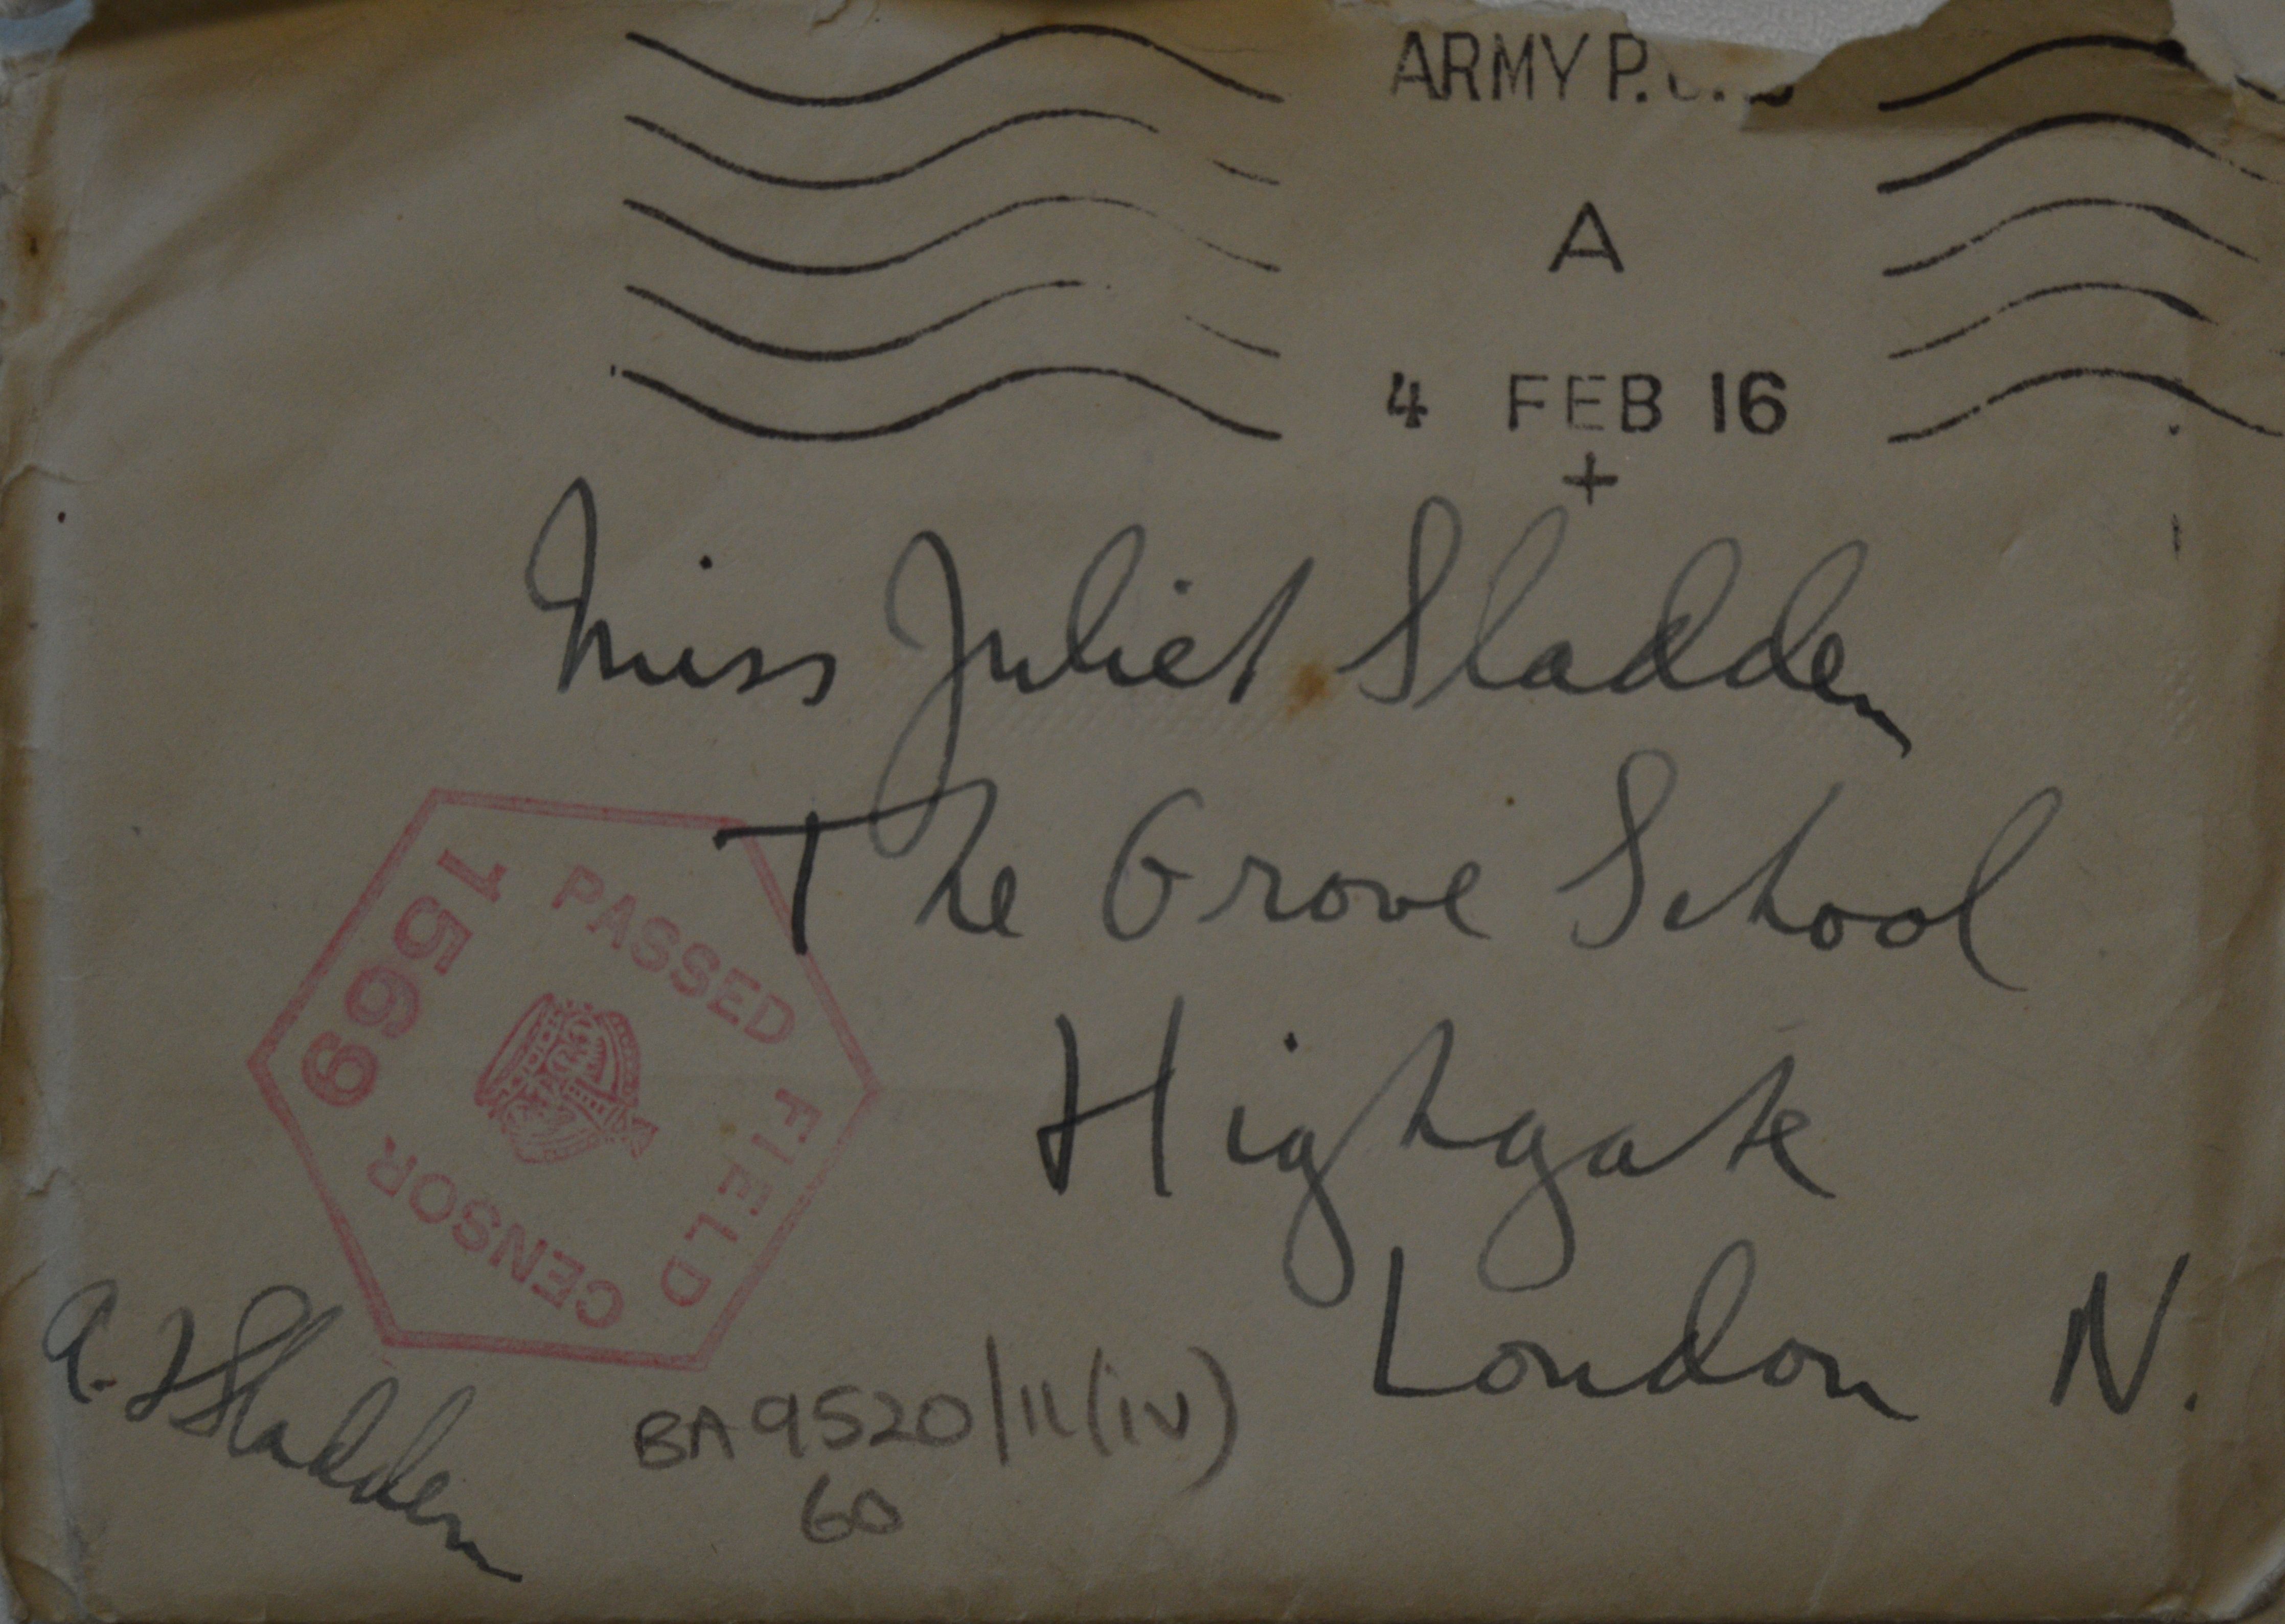 ARMY P.
A
4 FEB 16
+
Miss Juliet Sladden
The Grove School
Highgate
London N.
PASSED FIELD CENSOR
1569
A. F Sladden
BA9520/11(iv)
60